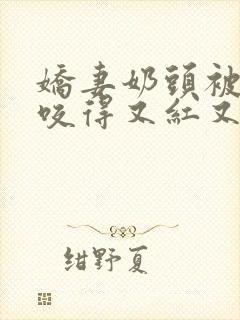 嬌妻奶頭被
咬得又紅又
紺野夏